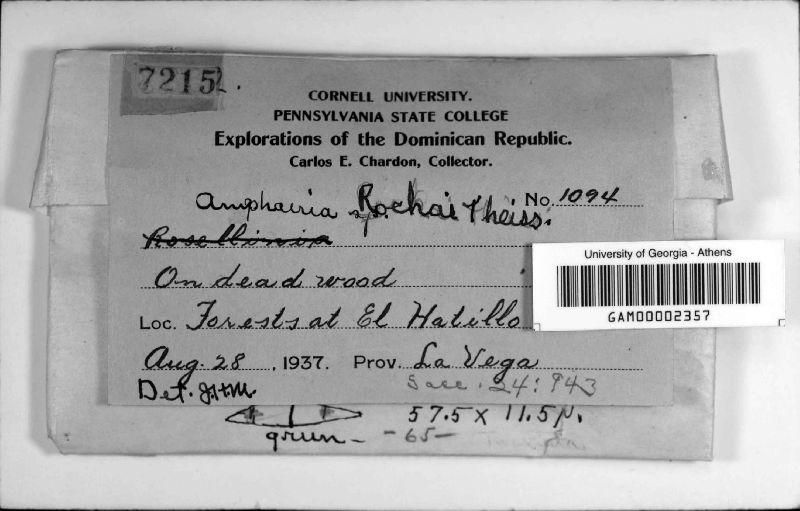 7215
CORNELL UNIVERSITY.
PENNSYLVANIA STATE COLLEGE
Explorations of the Dominican Republic.
Carlos E. Chardon, Collector.
Rochai Theiss. No. 1094
Rosellinia
On dead wood
University of Georgia - Athens
GAM00002357
Loc. Forests at El Hatillo
Aug. 28, 1937. Prov. La Vega
Det. JHM
Sacc. 24: 943
57.5 x 11.5 μ.
-65-